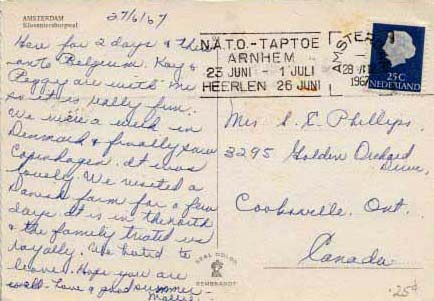 AMSTERDAM
Kloveniersburgwal
27/6/67
Here for 2 days & then
onto Belgium. Kay &
Peggy are with me
so it is really fun.
We were a week in
Denmark & finally saw
Copenhagen. It was
lovely. We visited a
Danish farm for a few
days. It is in the north
& the family treated us
royally. We hated to
leave. Hope you are
well. Love & good summer -
N.A.T.O.-TAPTOE
ARNHEM
23 JUNI - 1 JULI
HEERLEN 26 JUNI
25 C
NEDERLAND
Mrs S. E. Phillips,
3295 Golden Orchard
Drive,
Cooksville, Ont.
Canada
REMBRANDT
25¢